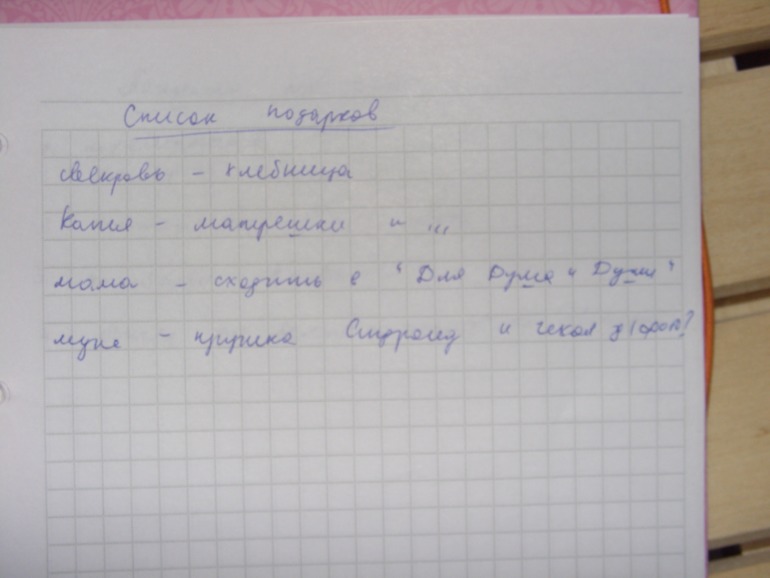 Список подарков
свекровь - хлебница
Катя - матрешки и ...
мама - сходить в "Для Душа и Души"
муж - кружка и чехол д/фот?